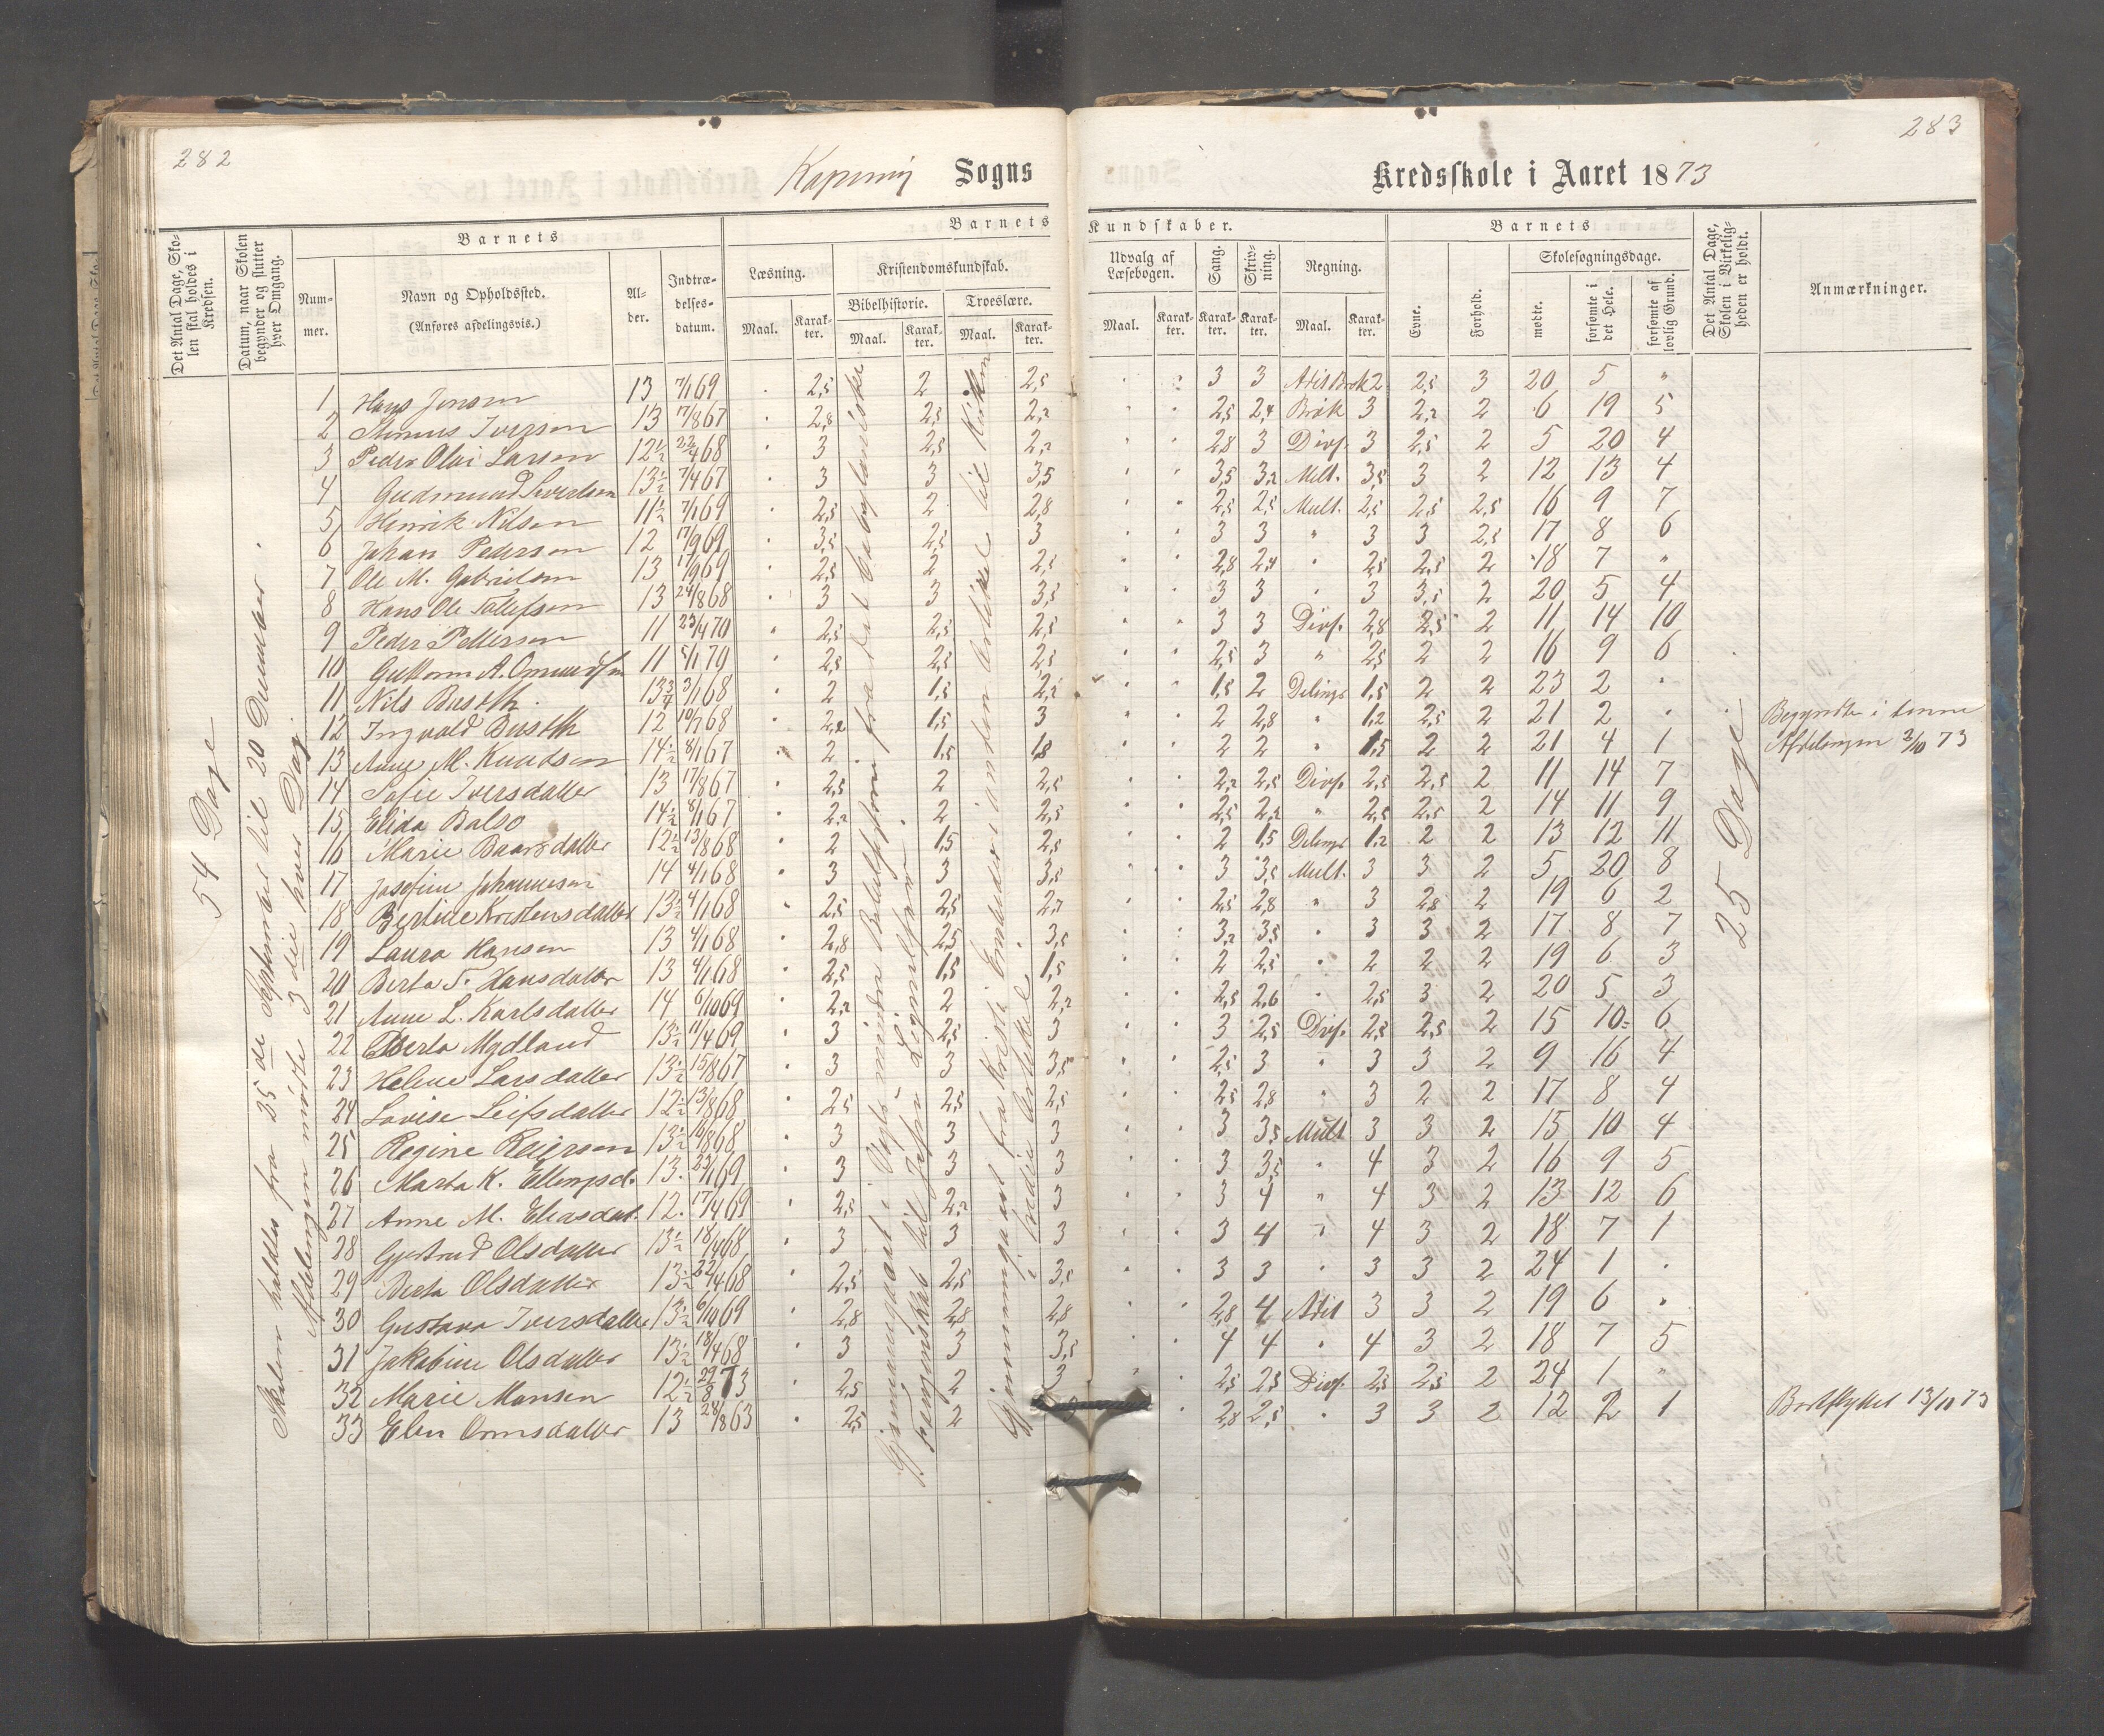 282
283
Sogns
Kredsskole i Aaret 1873
Det Antal Dage, Skolen skal holdes i Kredsen.
Datum, naar Skolen begynder og slutter hver Omgang.
Barnets
Nummer.
Navn og Opholdssted.
(Anføres afdelingsvis.)
Alder.
Indtrædelsesdatum.
Barnets Kundskaber.
Læsning.
Kristendomskundskab.
Bibelhistorie.
Troeslære.
Maal.
Karakter.
Maal.
Karakter.
Maal.
Karakter.
Udvalg af Læsebogen.
Sang.
Skrivning.
Regning.
Maal.
Karakter.
Karakter.
Karakter.
Maal.
Karakter.
Barnets
Evne.
Forhold.
Skolesøgningsdage.
mødte.
forsømte i det Hele.
forsømte af lovlig Grund.
Det Antal Dage, Skolen i Virkeligheden er holdt.
Anmærkninger.
54 Dage
Skolen holdtes fra 25de September til 20 December.
Afdelingen mødte 3die hver Dag.
25 Dage
1 Hans Jensen 13 7/1 69 2,5 2 2,5 3 3 2 2,5 3 20 5 "
2 Iversen 13 17/8 67 2,8 2,5 2,2 2,5 2,4 Brøk 3 2,2 2 6 19 5
3 Peder Olai Larsen 12½ 22/4 68 3 2,5 2,2 2,8 3 Divs. 3 2,5 2 5 20 4
4 Gudmund 13½ 7/4 67 3 3 3,5 3,5 3,2 Mult. 3,5 3 2 12 13 4
5 Henrik Nilsen 11½ 7/1 69 2,5 2 2,8 2,5 2,5 Mult. 2,5 2,5 2,5 16 9 7
6 Johan Pedersen 12 17/9 69 3,5 2,5 3 3 3 " 3 3 2,5 17 8 6
7 Ole M. Gabrielsen 13 17/9 69 2,5 2 2,5 2,8 2,4 " 2,5 2,5 2 18 7 "
8 Hans Ole Tollefsen 13 24/8 68 3 3 3,5 3 3 " 3 3,5 2 20 5 4
9 Peder Pettersen 11 23/4 70 2,5 2,5 2,5 3 3 Divs. 2,8 2,5 2 11 14 10
10 Guttorm A. Omundsen 11 5/1 70 2,5 2,5 2,5 2,5 3 " 2,5 2 2 16 9 6
11 Nils Buseth 13¾ 3/1 68 2 1,5 2,2 1,5 2 Delings 1,5 2 2 23 2 "
12 Ingvald Buseth 12 10/7 68 2,2 1,5 3 2 2,8 " 1,2 2,5 2 21 2 " Begyndte i denne
13 Anne M. Knudsen 14½ 8/1 67 2 1,5 1,8 2 2 " 1,5 2 2 21 4 1 Afdelingen 2/10 73
14 Sofie Iversdatter 13 17/8 67 2,5 2 2,5 2,2 2,5 Divs. 2,5 2,5 2 11 14 7
15 Elida Balso 14½ 8/1 67 2,2 2 2,5 2,5 2,2 " 2,5 2,5 2 14 11 9
16 Marie Baarsdatter 12½ 13/8 68 2 1,5 2,5 2 1,5 Delings 1,2 2 2 13 12 11
17 Josefine Johannesen 14 4/1 68 3 3 3,5 3 3,5 Mult. 3 3 2 5 20 8
18 Bertine Kristensdatter 13½ 4/1 68 2,5 2,5 2,2 2,5 2,8 " 3 2,8 2 19 6 2
19 Laura Hansen 13 4/1 68 2,8 2,5 3,5 3,2 3,5 " 3 3 2 17 8 7
20 Berta T. Hansdatter 13 4/1 68 2,5 1,5 1,5 2 2,5 " 2 2 2 19 6 3
21 Anne L. Karlsdatter 14 6/10 69 2,2 2 2,2 2,5 2,6 " 2,5 3 2 20 5 3
22 Berta Mydland 13½ 11/4 69 3 2,5 3 3 2,5 Divs. 2,5 2,5 2 15 10 6
23 Helene Larsdatter 13½ 15/8 67 3 3 3,5 2,5 3 " 3 3 2 9 16 4
24 Lovise Leifsdatter 12½ 13/8 68 2,5 2,5 2,5 2,5 2,8 " 3 2 2 17 8 4
25 Regine Reiersen 13½ 16/8 68 3 3 3 3 3,5 Mult 3 3 2 15 10 4
26 Marta K. Ellingsd. 13 23/1 69 3 3 3 3 3,5 " 4 3 2 16 9 5
27 Anne M. Eliasdat. 12 17/4 69 2,5 2,2 3 3 4 " 4 3 2 13 12 6
28 Gjertrud Olsdatter 13½ 18/4 68 3 3 3 3 4 " 4 3 2 18 7 1
29 Berta Olsdatter 13½ 22/4 68 2,5 2,5 3,5 3 3 " 3 3 2 24 1 "
30 Gustava Iversdatter 13½ 6/10 69 2,8 2,8 2,8 2,8 4 Adit 3 3 2 19 6 "
31 Jakobine Olsdatter 13½ 18/4 68 3 3 3,5 4 4 " 4 3 2 18 7 5
32 Marie Monsen 12½ 22/8 73 2,5 2 3 2,5 2,5 Divs. 2,5 2,5 2 24 1 "
33 Elen Ormsdatter 13 28/8 63 2,5 2 3 2,8 2,5 " 3 3 2 12 2 1 Bortflyttet 13/11 73